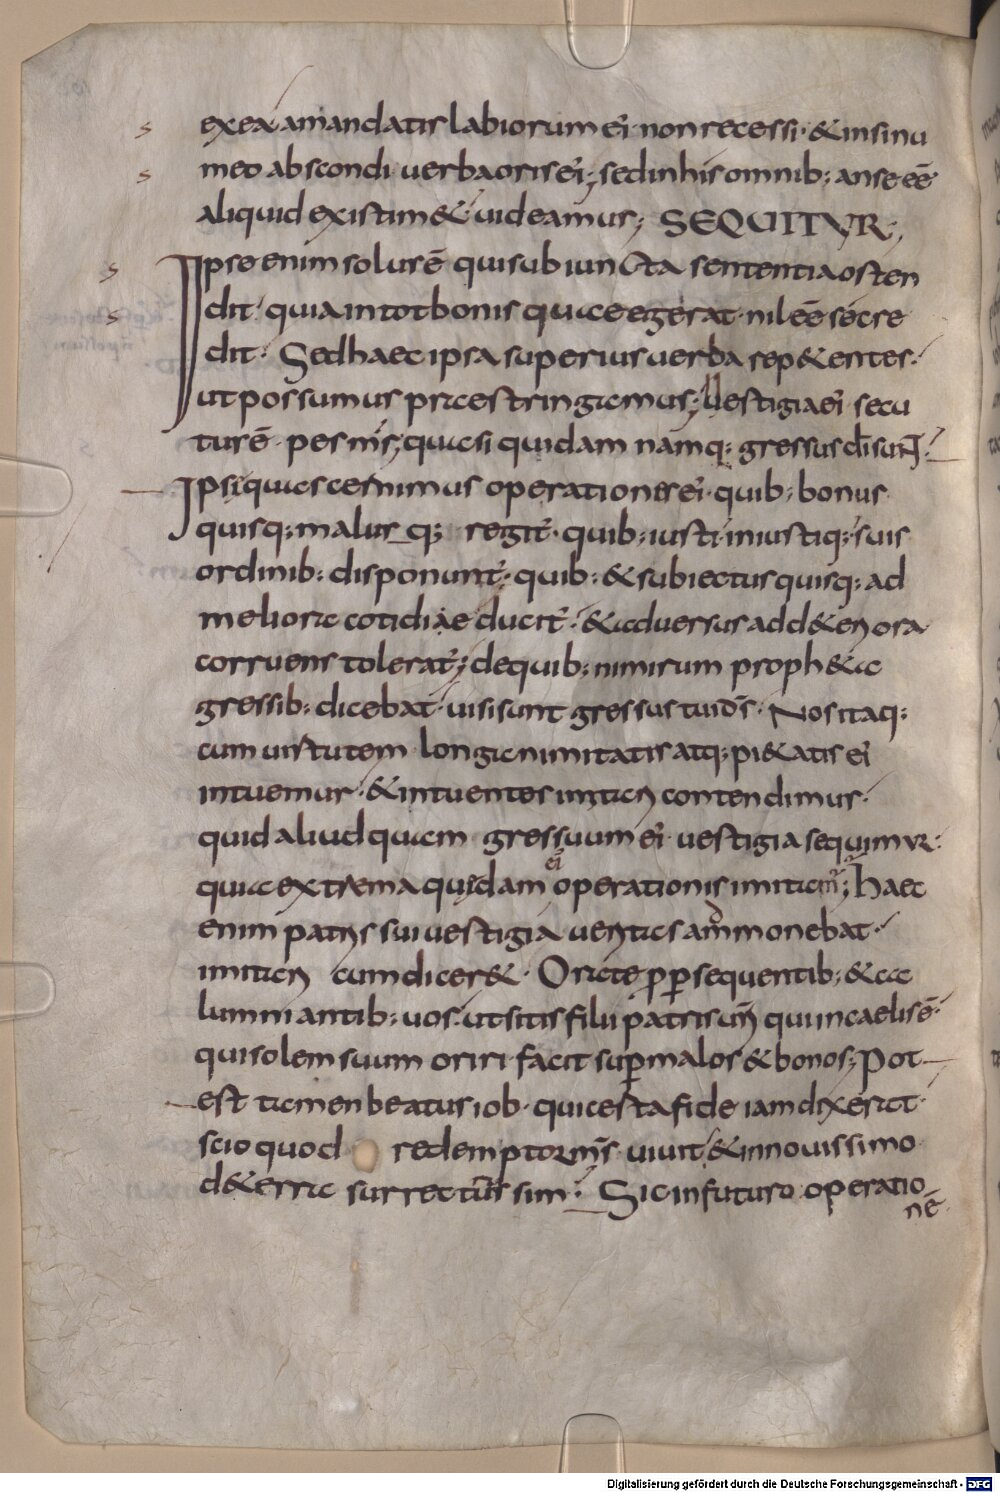 exea a mandatis labiorum ei non recessi · & in sinu
meo abscondi uerba oris ei; sed in his omnib; an se eē
aliquid existim& uideamus; SEQUITVR;
Ipse enim solus ē qui subiuncta sententia osten
dit · quia in tot bonis quae egerat · nil eē se cre
dit · Sed haec ipsa superius uerba rep&entes ·
ut possumus praestringamus; Uestigia ei secu
tus ē pes m̄s; quasi quidam namq; gressus dī sunt
Ipsi quas cernimus operationes ei · quib; bonus
quisq; malus q; regit · quib; iusti iniustiq; suis
ordinib; disponunt · quib; & subiectus quisq; ad
meliora cotidiae ducit · & aduersus ad d&eriora
corruens tolerat; de quib; nimirum proph&a
gressib; dicebat · uisi sunt gressus tui dS · Nos itaq;
cum uirtutem longanimitatis atq; pi&atis ei
intuemur · & intuentes imitari contendimus ·
quid aliud quam gressuum ei · uestigia sequimur ·
quia extrema quędam ei operationis imitamur; Haec
enim patris sui uestigia ueritas ammonebat ·
imitari cum dicer& · Orate p psequentib; & ca
lumniantib; uos · ut sitis filii patris uri qui in caelis ē ·
qui solem suum oriri facit sup malos & bonos; Pot
est tamen beatus iob · qui certa fide iam dixerat ·
scio quod redemptor ms uiuit & in nouissimo
de terra surrecturus sim · Sic in futuro operatio
nē
Digitalisierung gefördert durch die Deutsche Forschungsgemeinschaft - DFG